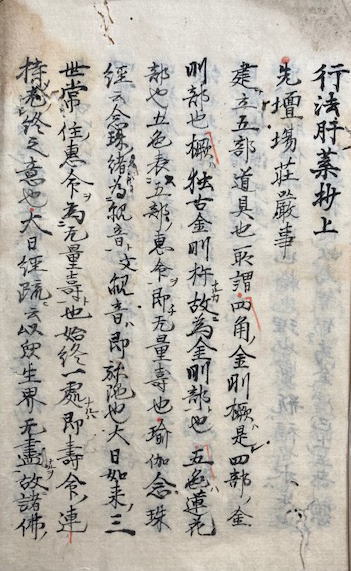 行法肝葉抄上
先壇場荘厳事
建立五部道具也所謂四角金剛橛是四部金
剛部也橛ハ独古金剛杵故為金剛部也五色蓮花
部也五色表五部恵命ヲ即无量寿也瑜伽念珠
経云念珠緒為観音ト文観音ハ即弥陀也大日如来三
世常住恵命ヲ為无量寿ト也始終一處即寿命連
持始終之意也大日経疏ニ云以衆生界无盡故諸佛